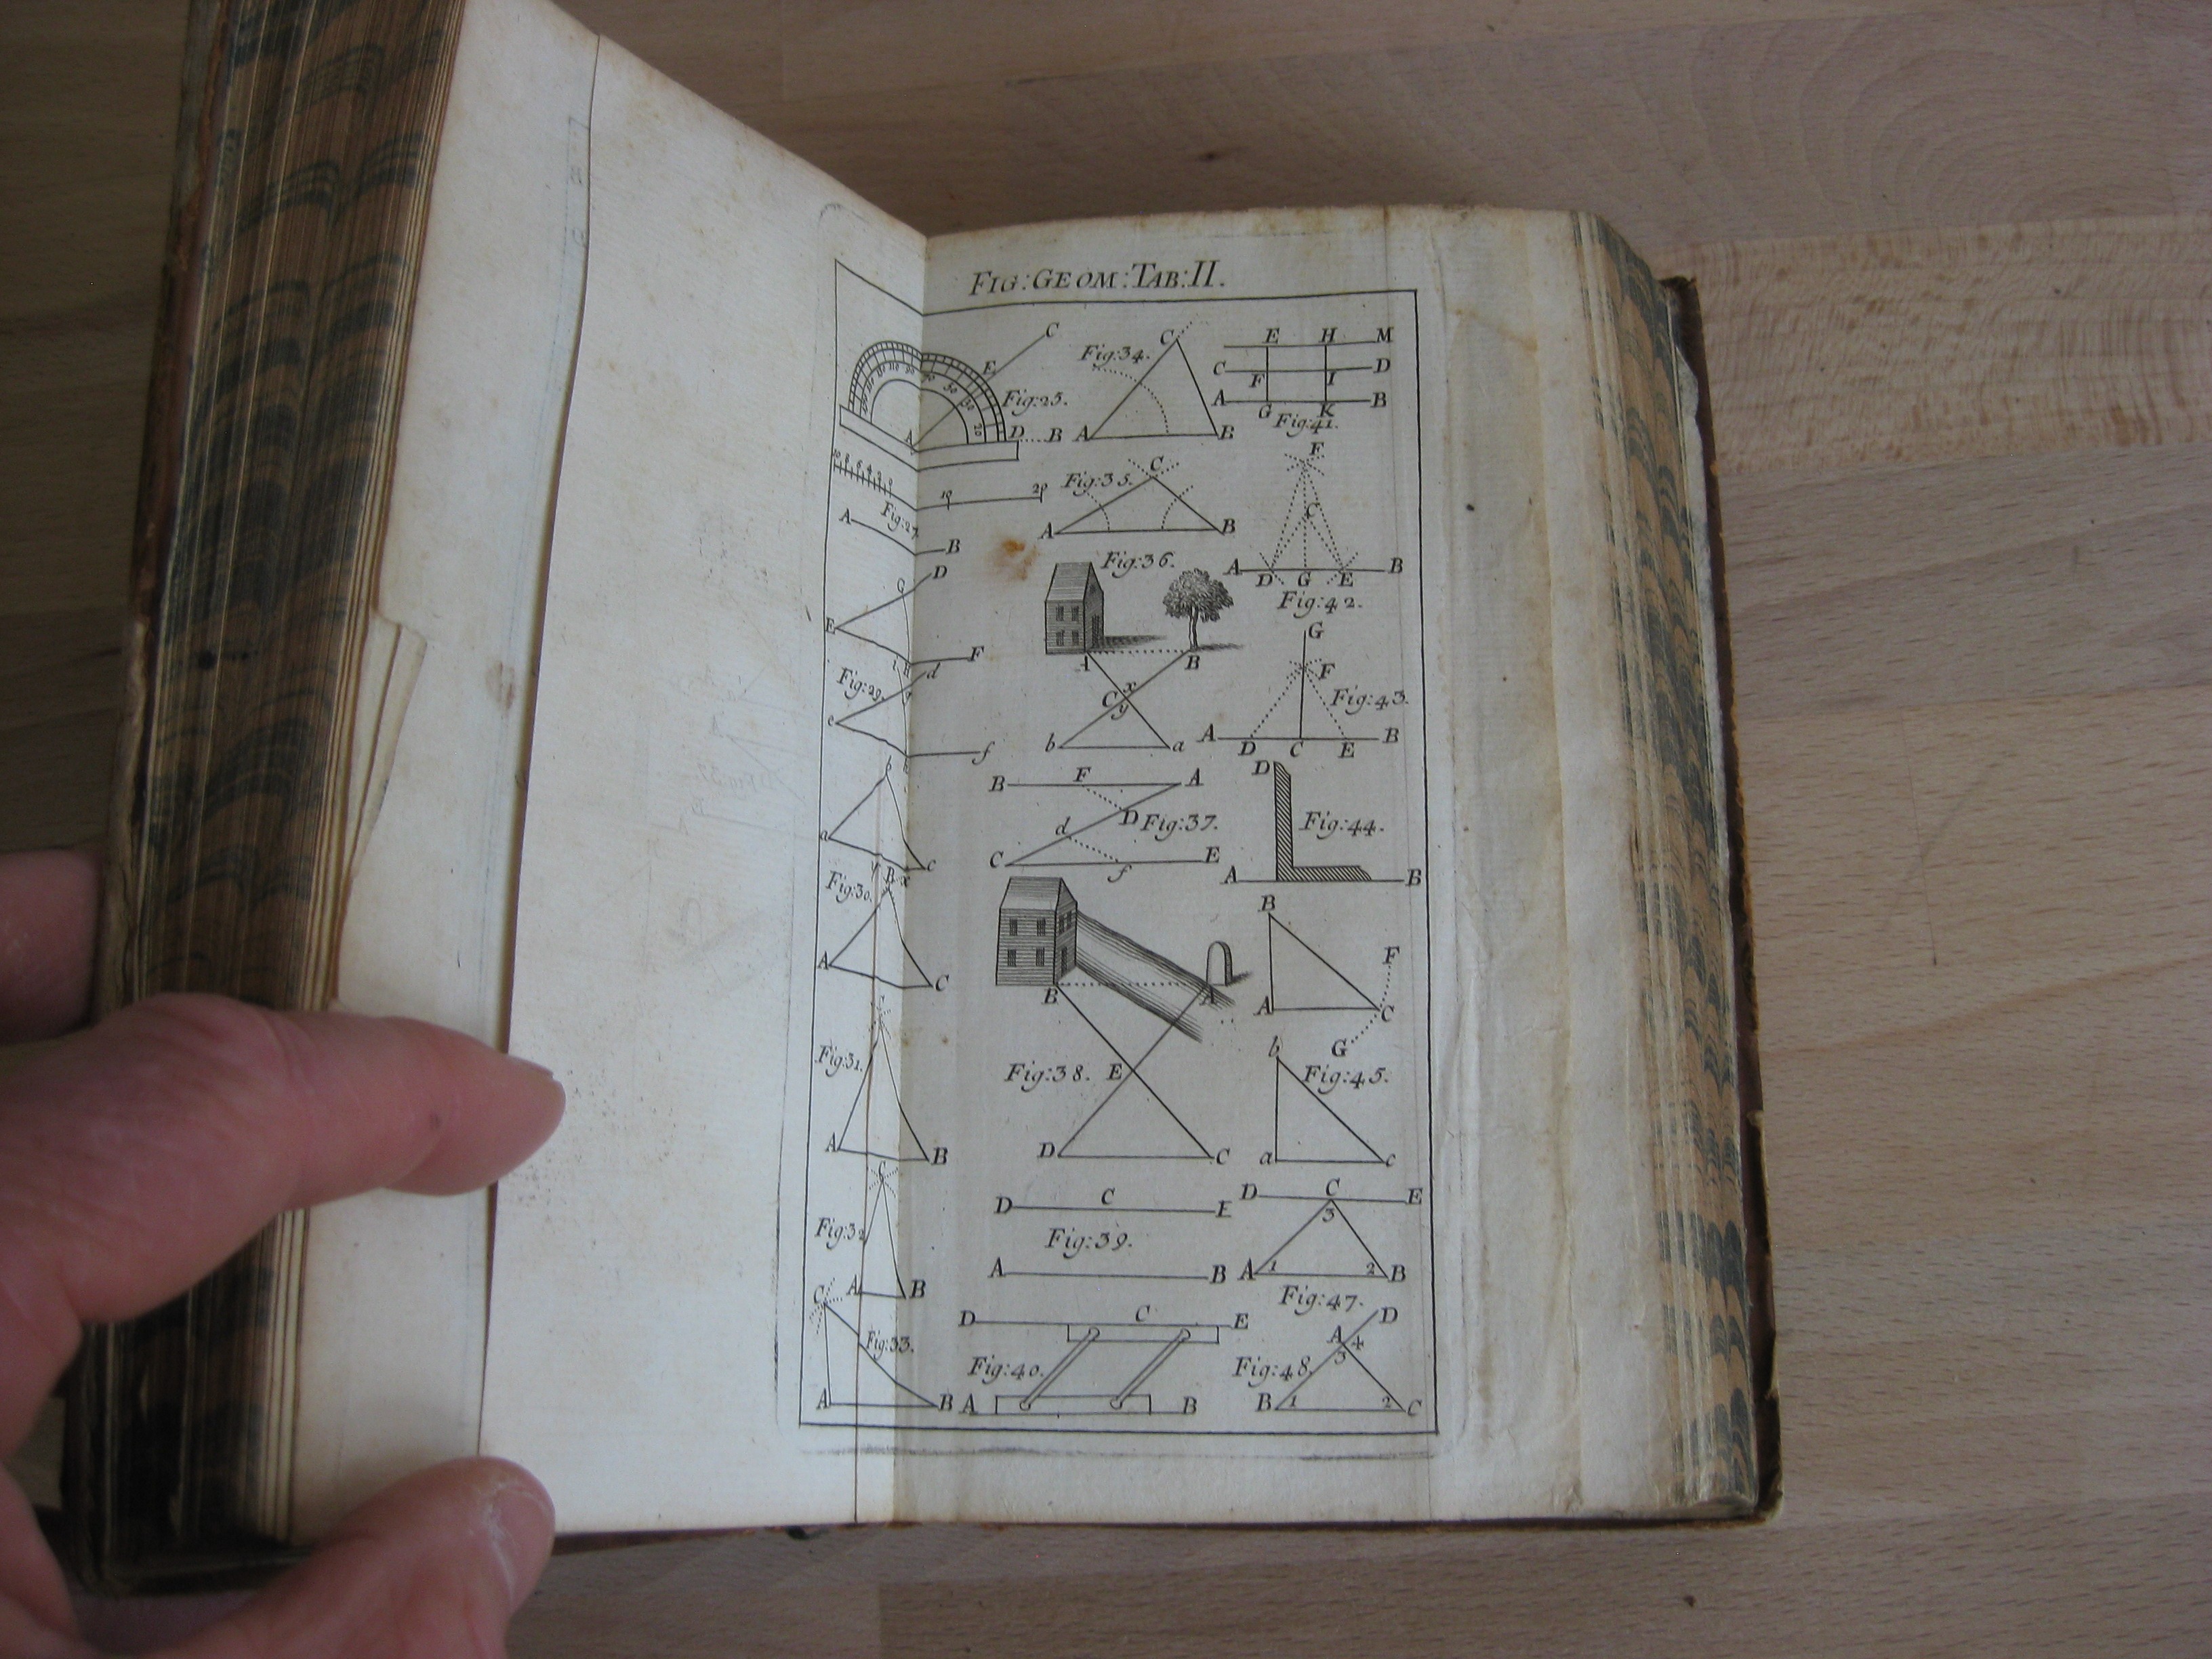 FIG: GEOM: TAB: II.
C
E
Fig: 25.
A
D
B
20
10
20
Fig: 27.
A
B
D
G
E
F
H
Fig: 29.
d
e
f
b
a
c
Fig: 30.
B
x
A
C
C
Fig: 31.
A
B
C
Fig: 32
A
B
C
Fig: 33.
A
B
Fig: 34.
C
A
B
Fig: 35.
C
A
B
Fig: 36.
A
B
C
x
y
b
a
B
F
A
D
Fig: 37.
d
C
f
E
B
A
Fig: 38.
E
D
C
D
C
E
Fig: 39.
A
B
D
C
E
Fig: 40.
A
B
E
H
M
C
D
F
I
A
B
G
K
Fig: 41.
F
C
A
B
D
G
E
Fig: 42.
G
F
Fig: 43.
A
B
D
C
E
D
Fig: 44.
A
B
B
F
A
C
G
b
Fig: 45.
a
c
D
C
E
3
A
1
2
B
Fig: 47.
D
A
4
3
Fig: 48.
B
1
2
C